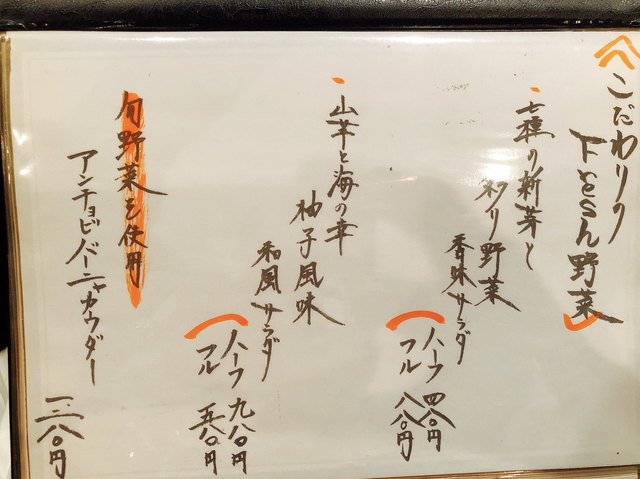 こだわりの
野菜
七種の新芽と
彩り野菜
香味サラダ
ハーフ 四八〇円
フル 八八〇円
山芋と海の幸
柚子風味
和風サラダ
ハーフ 九八〇円
フル 五八〇円
旬野菜を使用
アンチョビバーニャカウダー
一二八〇円